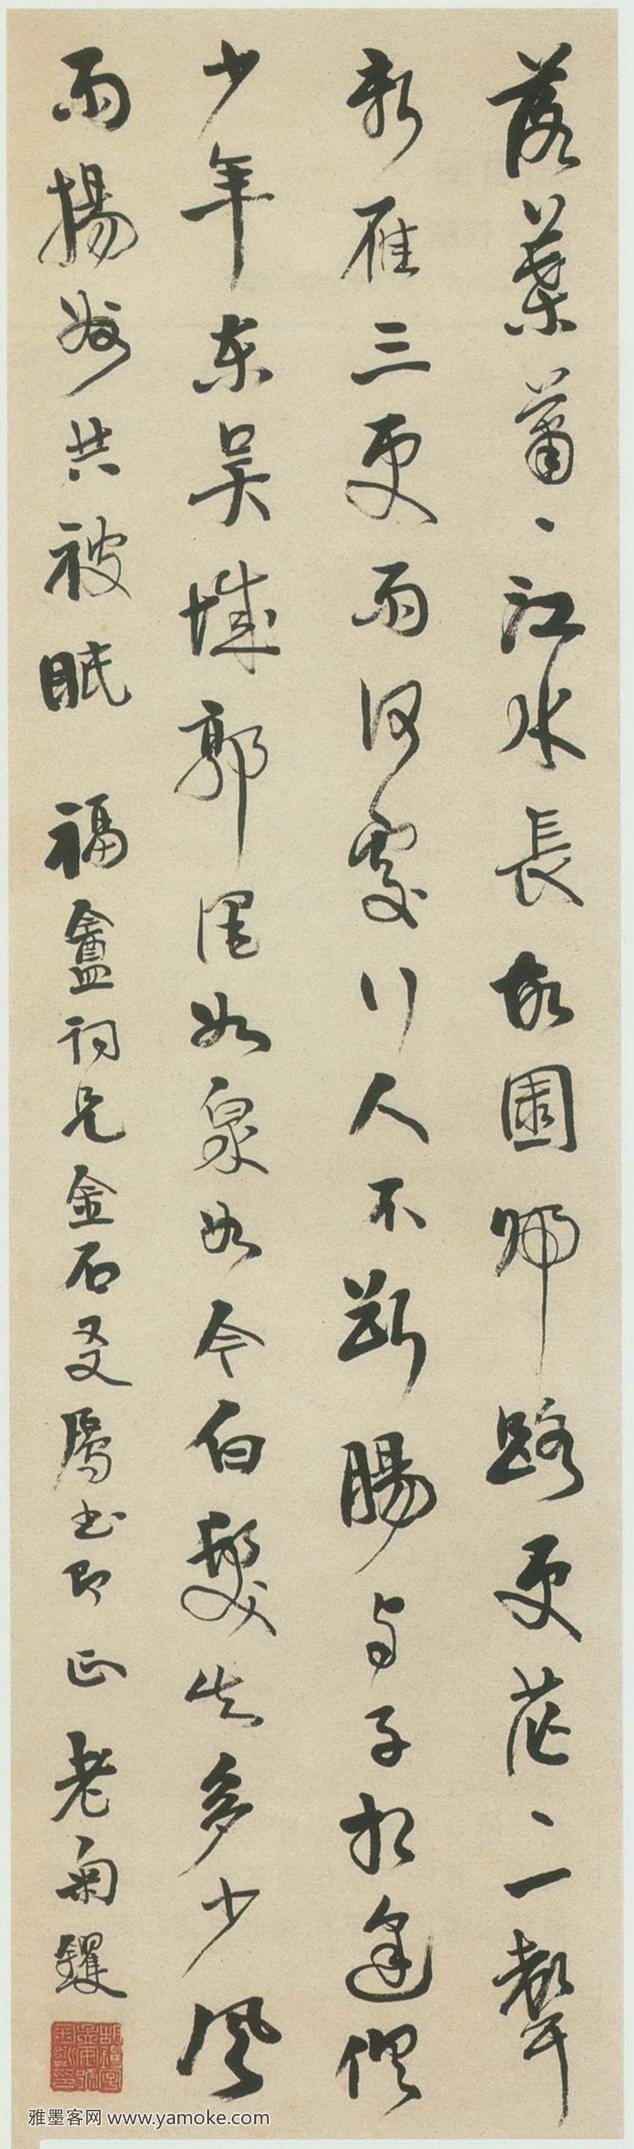 落葉蕭〻江水長故園歸路更茫〻一聲
新雁三更雨何處行人不斷腸与子相逢俱
少年東吴城郭酒如泉如今白髮知多少風
雨揚州共被眠 福盦詞兄金石交屬書即正 老菊钁
雅墨客网 www.yamoke.com